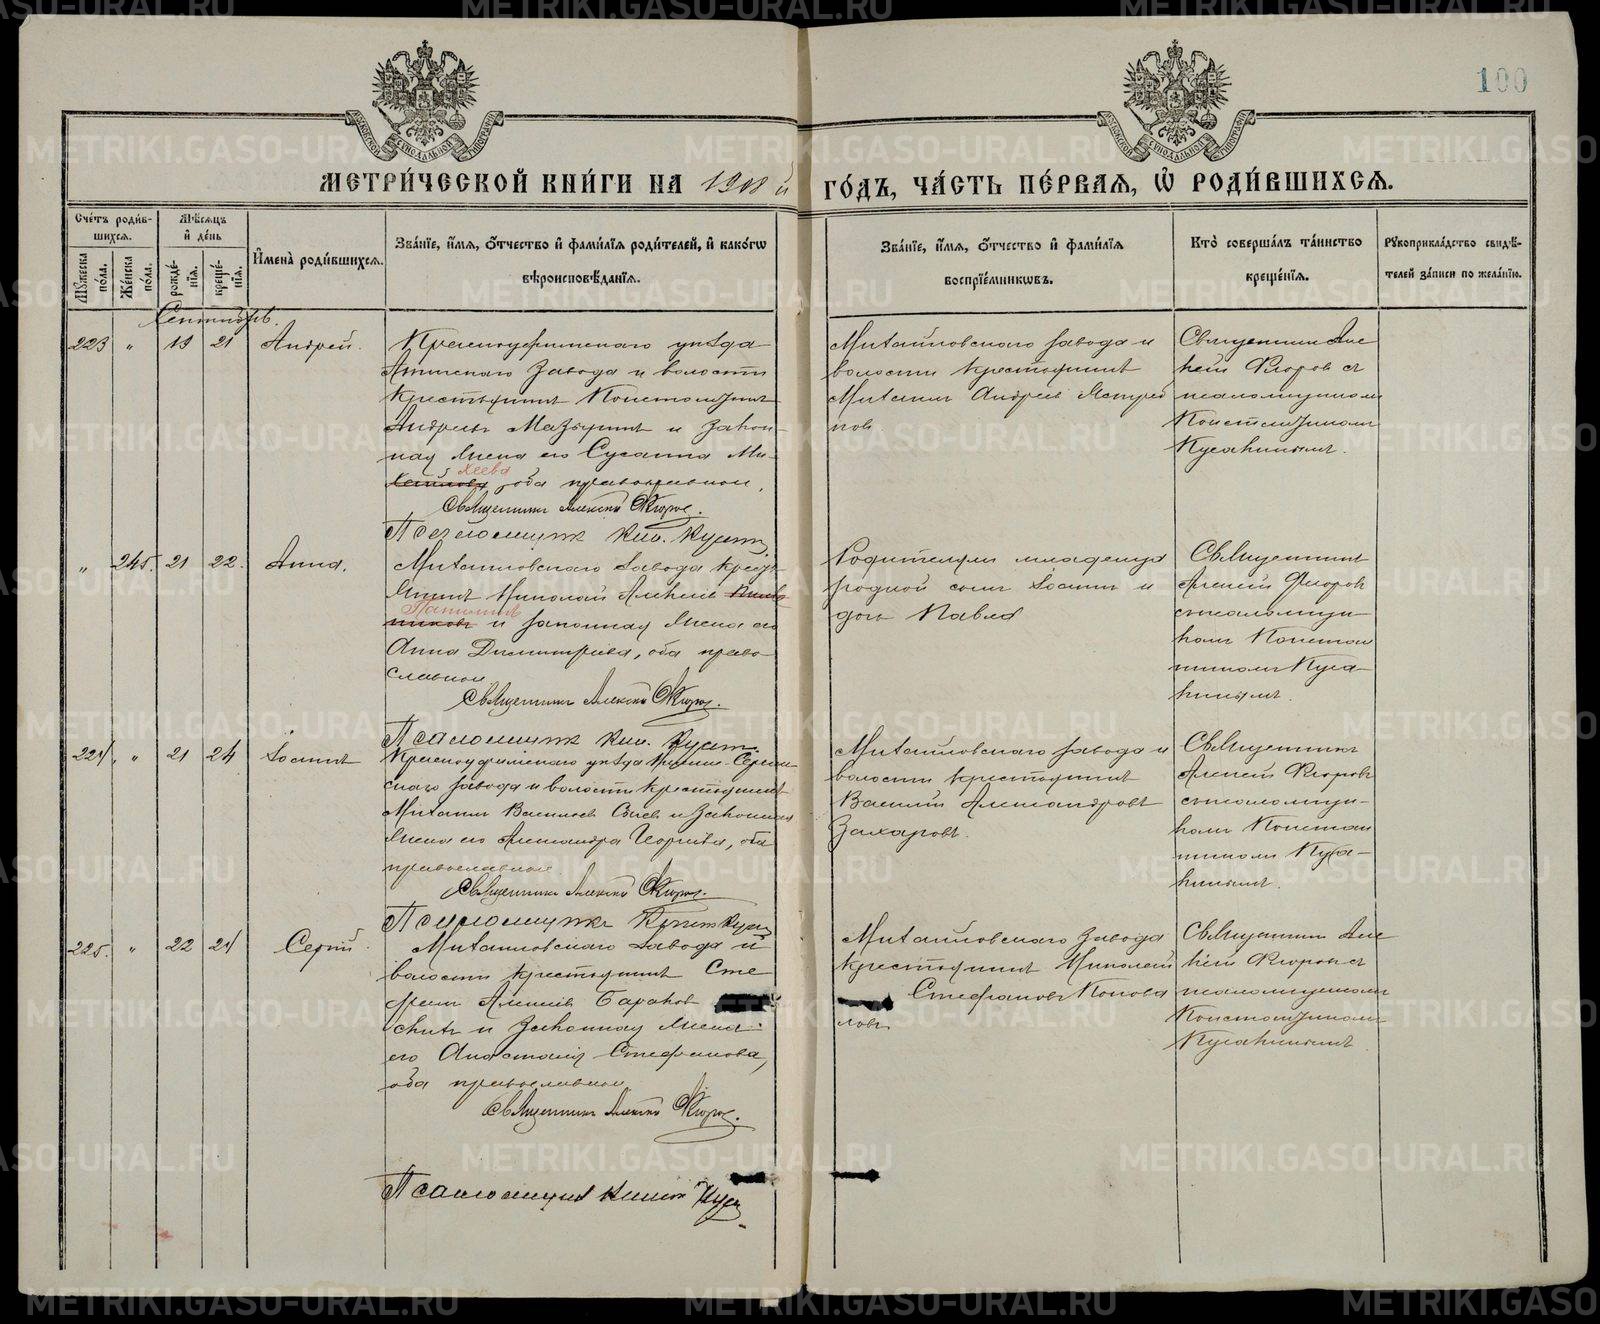 100
МЕТРИ́ЧЕСКОЙ КНИ́ГИ НА 1908 й ГО́ДЪ, ЧА́СТЬ ПЕ́РВАЯ, Ѡ РОДИ́ВШИХСЯ.
Сче́тъ роди́в-
шихся.
Мѣ́сяцъ
и́ де́нь
Мꙋ́жеска
по́ла.
Же́нска
по́ла.
рожде́-
нїя.
креще́-
нїя.
И҆мена̀ роди́вшихся.
Зва́нїе, и҆́мя, ѻ҆́тчество и҆ фами́лїя роди́телей, и҆ како́гѡ
вѣроисповѣ́данїя.
Зва́нїе, и҆́мя, ѻ҆́тчество и҆ фами́лїя
воспрїе́мникѡвъ.
Кто̀ соверша́лъ та́инство
креще́нїя.
Рꙋкоприкла́дство свидѣ́-
телей за́писи по жела́нїю.
Сентябрь.
223 " 19 21 Андрей.
Красноуфимскаго уѣзда
Атигскаго завода и волости
крестьянинъ Константинъ
Андреевъ Мазыринъ и закон-
ная жена его Сусанна Ми-
хайлова хеева оба православные.
Священникъ Алексѣй Флоров.
Псаломщикъ Кон.
Михайловскаго завода и
волости крестьянинъ
Михаилъ Андреевъ Ястреб
ковъ.
Священникъ Але
ксѣй Флоровъ съ
псаломщикомъ
Константиномъ
Кусакинымъ.
" 245. 21 22. Анна.
Михайловскаго завода крест
янинъ Николай Алексѣевъ
и законная жена его
Анна Димитриева, оба право
славные
Священникъ Алексѣй Флоров.
Псаломщикъ Кон.
Родителями младенца
родной сынъ Іоаннъ и
дочь Павла
Священникъ
Алексѣй Флоровъ
съ псаломщи-
комъ Констан
тиномъ Куса-
кинымъ.
224 " 21 24 Іоаннъ
Красноуфимскаго уѣзда Нижне-Сергин-
скаго завода и волости крестьянинъ
Михаилъ Васильевъ и законная
жена его Александра Георгіева, оба
православные
Священникъ Алексѣй Флоров.
Псаломщикъ
Михайловскаго завода и
волости крестьянинъ
Василій Александровъ
Захаровъ.
Священникъ
Алексѣй Флоровъ
съ псаломщи-
комъ Констан
тиномъ Куса-
кинымъ.
225. " 22 24 Сергій.
Михайловскаго завода и
волости крестьянинъ Сте
фанъ Алексѣевъ
и законная жена
его Анастасія Стефанова,
оба православные.
Священникъ Алексѣй Флоров.
Псаломщикъ
Михайловскаго завода
крестьянинъ Николай
Стефановъ Коновa
ловъ
Священникъ Але
ксѣй Флоровъ съ
псаломщикомъ
Константиномъ
Кусакинымъ
METRIKI.GASO-URAL.RU